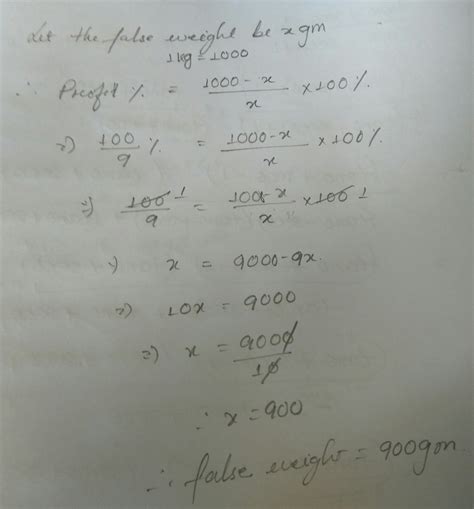 Let the false weight be x gm
1kg = 1000
∴ Profit % = 1000 - x / x × 100%
⇒) 100/9 % = 1000-x / x × 100%.
⇒) 100 1 / 9 = 1000-x / x × 100 1
⇒) x = 9000-9x.
⇒) 10x = 9000
⇒) x = 9000/10
∴ x = 900
∴ false weight = 900gm.